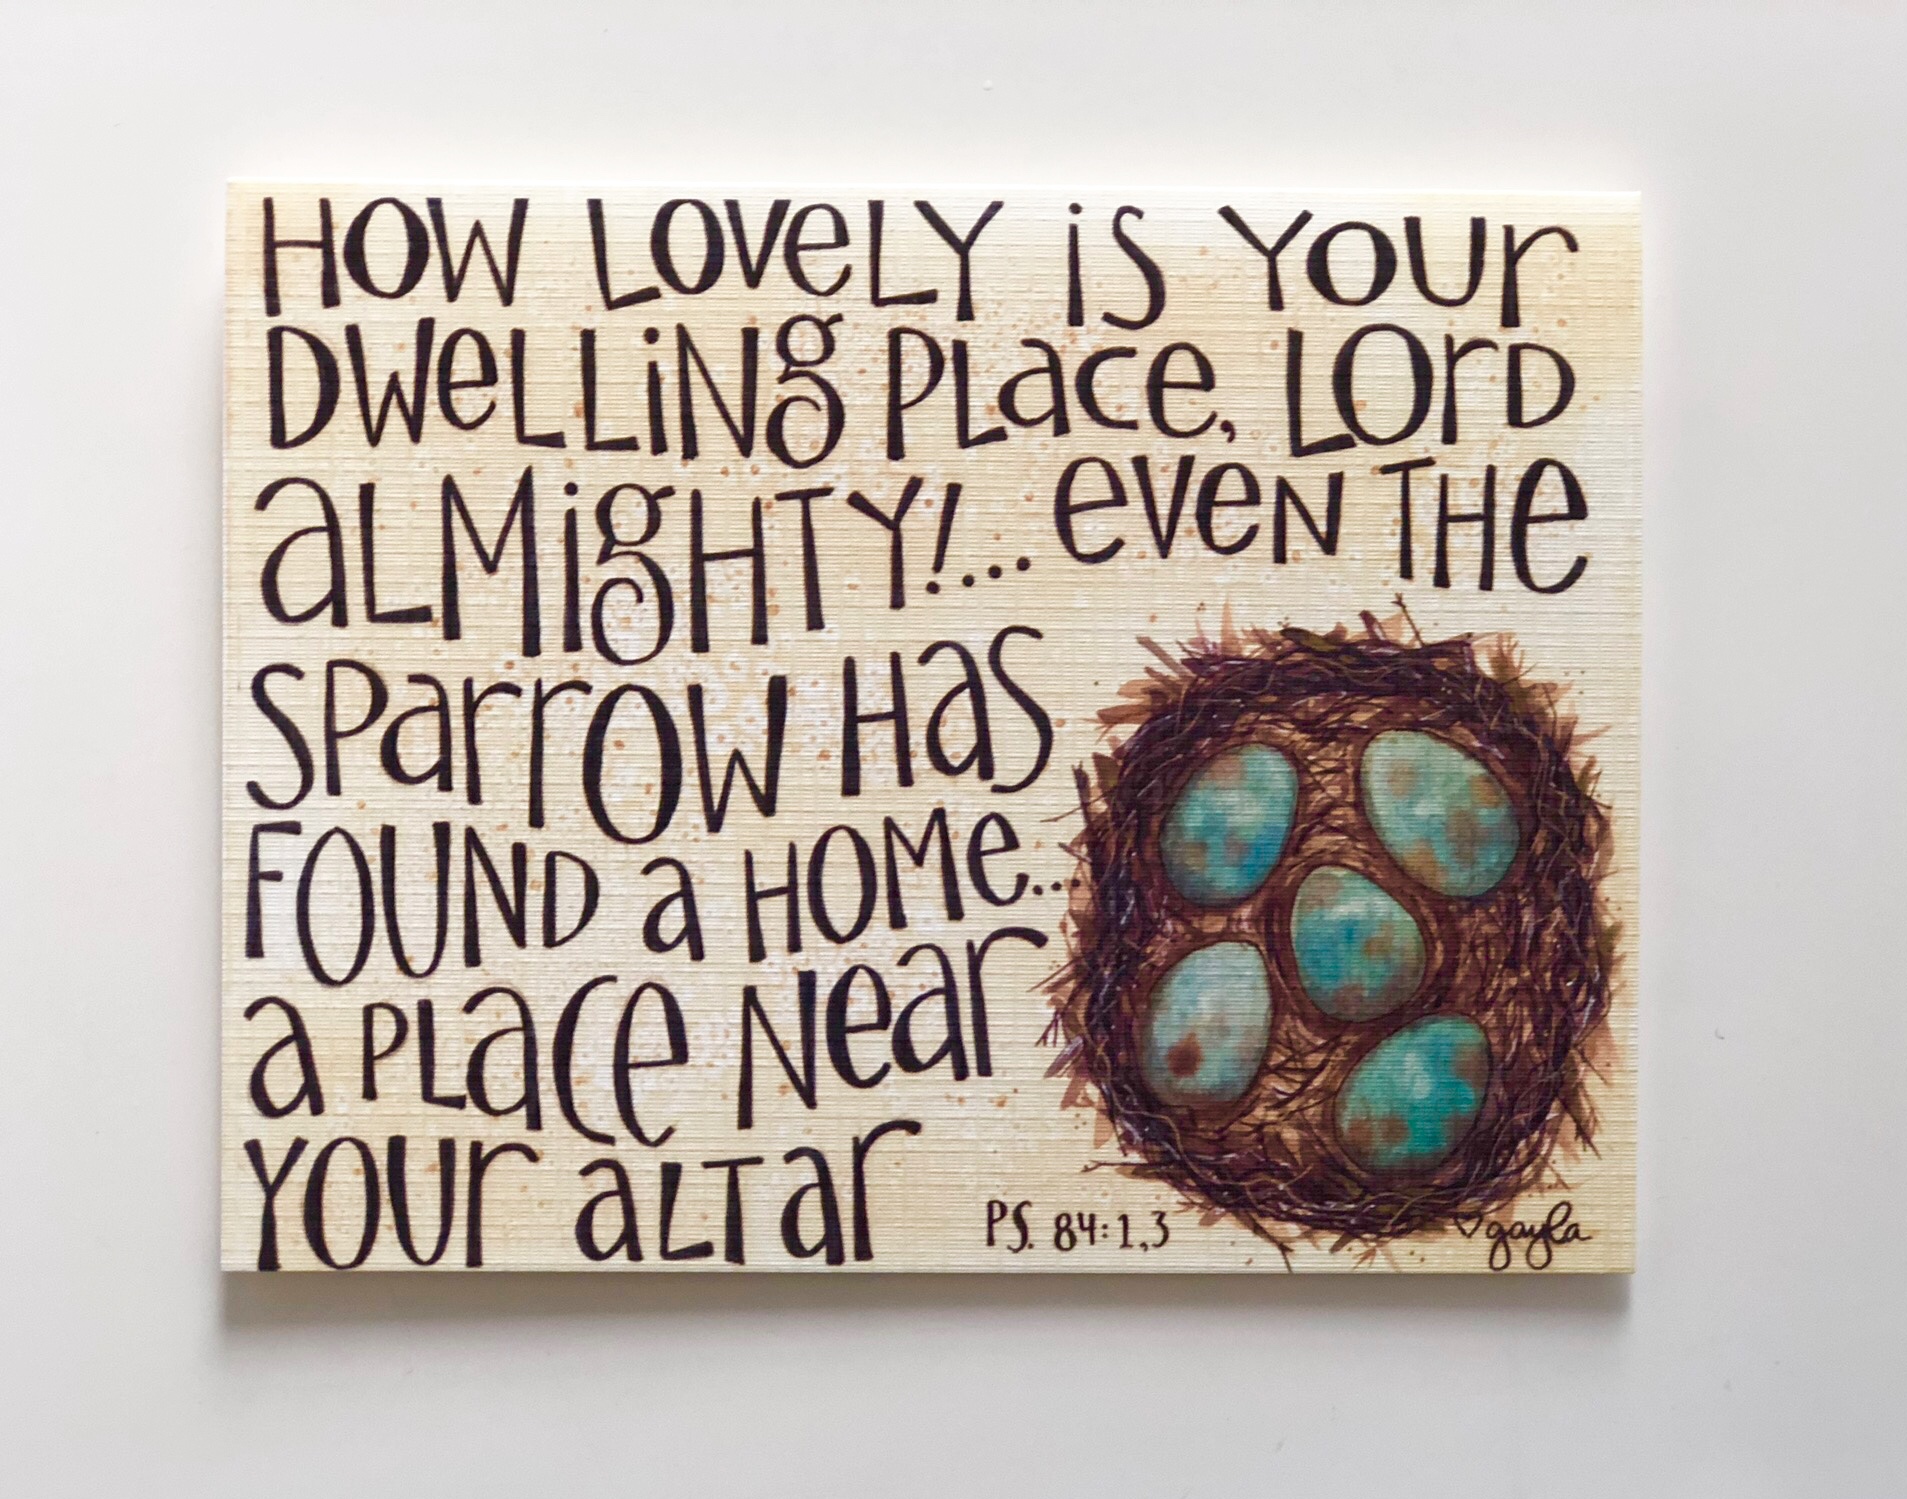 HOW LOVeLY iS YOUr
DWeLLiNg PLace, LOrD
aLMigHTY!... eveN THe
SParrOW Has
FOUND a HOMe...
a PLace Near
YOUr aLTar
PS. 84:1,3
♡gayla